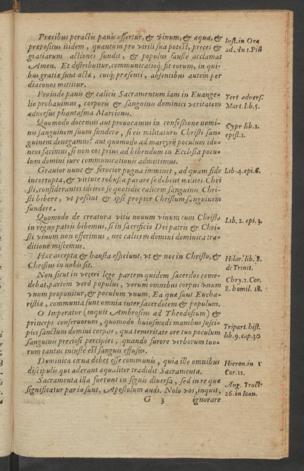 Precibus peractis panis offertur, & vinum, & aqua, &
præpositus itidem, quantum pro virili sua potest, preces &
gratiarum actiones fundit, & populus fauste acclamat
Amen. Et distributio, communicatioq́; fit eorum, in qui-
bus gratiæ sunt actæ, cuiq́; præsenti, absentibus autem per
diaconos mittitur.
Iust. in Ora
ad. An t. Piū
Proinde panis & calicis Sacramentum iam in Euange-
lio probauimus, corporis & sanguinis dominici veritatem
aduersus phantasma Marcionis.
Tert. aduers.
Mart. Lib. 5.
Quomodo docemus aut prouocamus in confessione nomi-
nis sanguinem suum fundere, si eis militaturis Christi san-
guinem denegamus? aut quomodo ad martyrij poculum ido-
neos facimus, si non eos prius ad bibendum in Ecclesia pocu-
lum domini iure communicationis admittimus.
Cypr. lib. 1.
epist. 2.
Grauior nunc & ferocior pugna imminet, ad quam fide
incorrupta, & virtute robusta parare se debent milites Chri
sti, considerantes idcirco se quotidie calicem sanguinis Chri-
sti bibere, vt possint & ipsi propter Christum sanguinem
fundere.
Lib. 4. epi. 6.
Quomodo de creatura vitis nouum vinum cum Christo
in regno patris bibemus, si in sacrificio Dei patris & Chri-
sti vinum non offerimus, nec calicem domini dominica tra-
ditione miscemus.
Lib. 2. epi. 3.
Hæc accepta & hausta efficiunt, vt & nos in Christo, &
Christus in nobis sit.
Hilar. lib. 8.
di Trinit.
Non sicut in veteri lege partem quidem sacerdos come-
debat, partem verò populus, verum omnibus corpus vnum
vnum proponitur, & poculum vnum. Ea quæ sunt Eucha-
ristiæ, communia sunt omnia inter sacerdotem & populum.
Chry. 2. Cor.
8. homil. 18.
O Imperator (inquit Ambrosius ad Theodosium) &
princeps conseruorum, quomodo huiuscemodi manibus susci-
pies sanctum domini corpus, qua temeritate ore tuo poculum
sanguinis preciosi percipies, quando furore verborum tuo-
rum tantus iniustè est sanguis effusus.
Tripart. hist.
lib. 9. cap. 30
Dominica cœna debet esse communis, quia ille omnibus
discipulis qui aderant æqualiter tradidit Sacramenta.
Hieron. in 1
Cor. 11.
Sacramenta illa fuerunt in signis diuersa, sed in re quæ
significatur paria sunt. Apostolum audi. Nolo vos, inquit,
Aug. Tract.
26. in Ioan.
G 3 ignorare